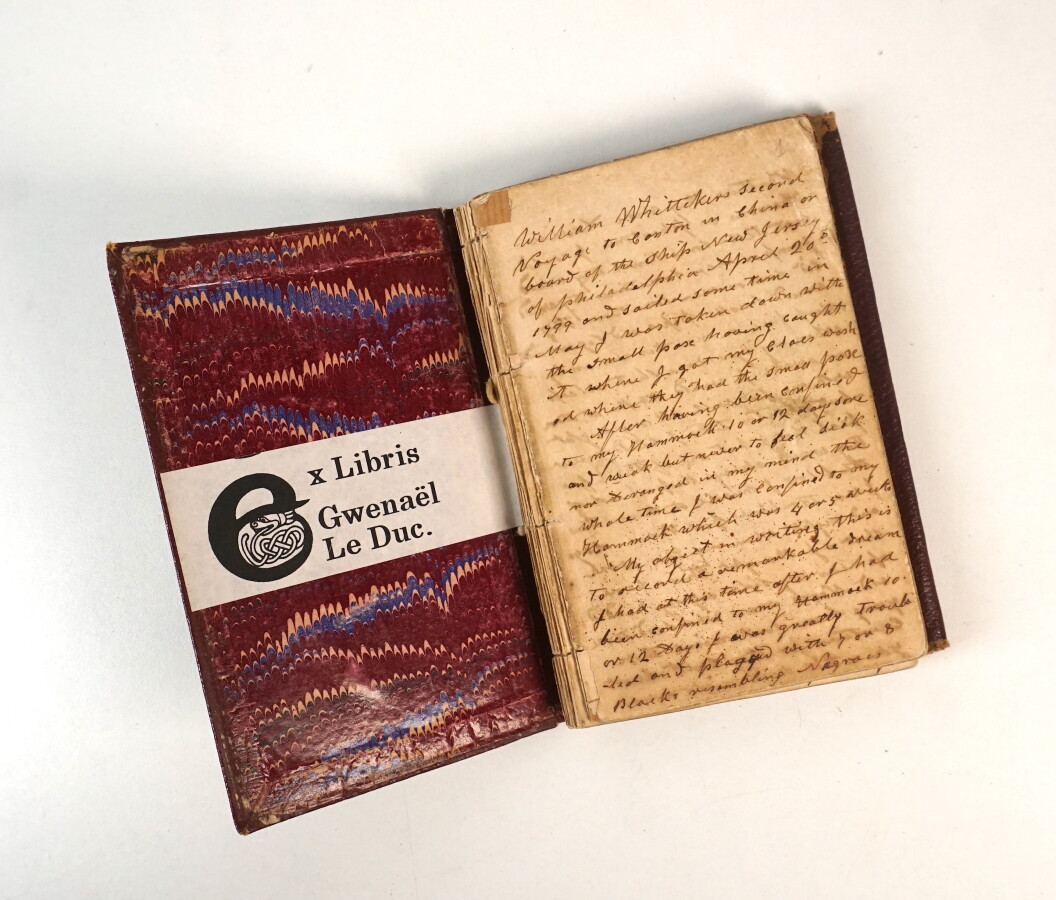 ex Libris
Gwenaël
Le Duc.
William Whittekers second
Voyage to Canton in China on
board of the ship New Jersey
of philadelphia April 20th
1799 and sailed some time in
May I was taken down with
the small pox having caught
it where I got my Cloes wash
ed where they had the small pox
After having been confined
to my Hammock 10 or 12 days sore
and weak but never to feel sick
nor Deranged in my mind the
whole time I was confined to my
Hammock which was 4 or 5 weeks
My object in writing this is
to record a remarkable dream
I had at this time after I had
been confined to my Hammock 10
or 12 Days I was greatly troub
led and plagged with 7 or 8
Blacks resembling Nagroes